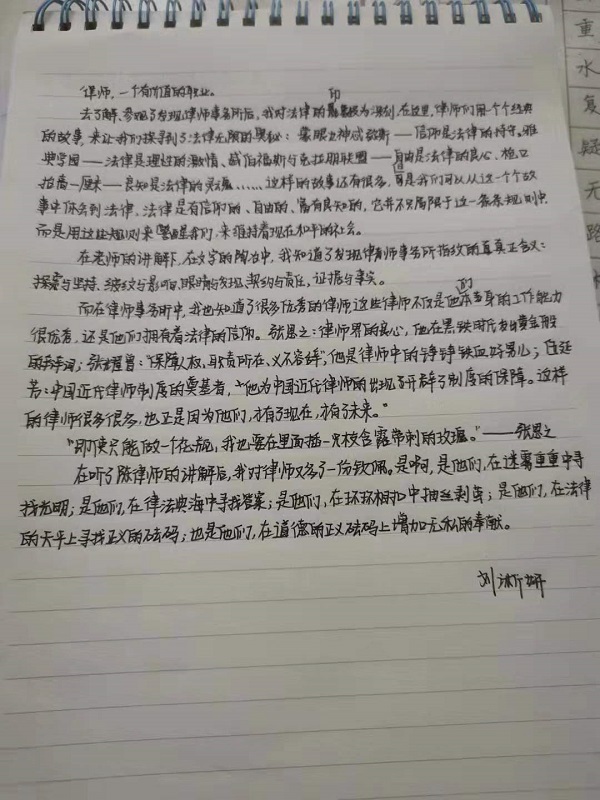 律师，一个有价值的职业。
去了解、参观了发现律师事务所后，我对法律的印象极为深刻，在这里，律师们用一个个经典
的故事，来让我们探寻到了法律无限的奥秘：蒙眼之神忒弥斯——信仰是法律的持守、雅
典学园——法律是理想的激情、威伯福斯与克拉朋联盟——自由是法律的良心、枪口
抬高一厘米——良知是法律的灵魂……这样的故事还有很多，可是我们可以从这一个个故
事中体会到法律，法律是有信仰的、自由的、富有良知的，它并不只局限于这一条条规则中
而是用这些规则来警醒我们，来维持着现在和平的社会。
在老师的讲解下，在文字的陶冶中，我知道了发现律师事务所指纹的真真正含义：
探索与坚持、缘纹与影响、眼睛与发现、契约与责任，证据与事实。
而在律师事务所中，我也知道了很多优秀的律师，这些律师不仅是他们本身的工作能力
很优秀，还是他们拥有着法律的信仰。张思之：律师界的良心，他在黑铁时代发出黄金般
的声音；张耀曾："保障人权，职责所在，义不容辞"，他是律师中的铮铮铁血好男儿；伍廷
芳：中国近代律师制度的奠基者，"他为中国近代律师的出现开辟了制度的保障。这样
的律师很多很多，也正是因为他们，才有了现在，才有了未来。"
"即使只能做一个花瓶，我也要在里面插一只枝含露带刺的玫瑰。"——张思之
在听了陈律师的讲解后，我对律师又多了一份钦佩。是啊，是他们，在迷雾重重中寻
找光明；是他们，在律法典海中寻找答案；是他们，在环环相扣中抽丝剥茧；是他们，在法律
的天平上寻找正义的砝码；也是他们，在道德的正义砝码上增加无私的奉献。
刘
重
水
复
疑
无
路